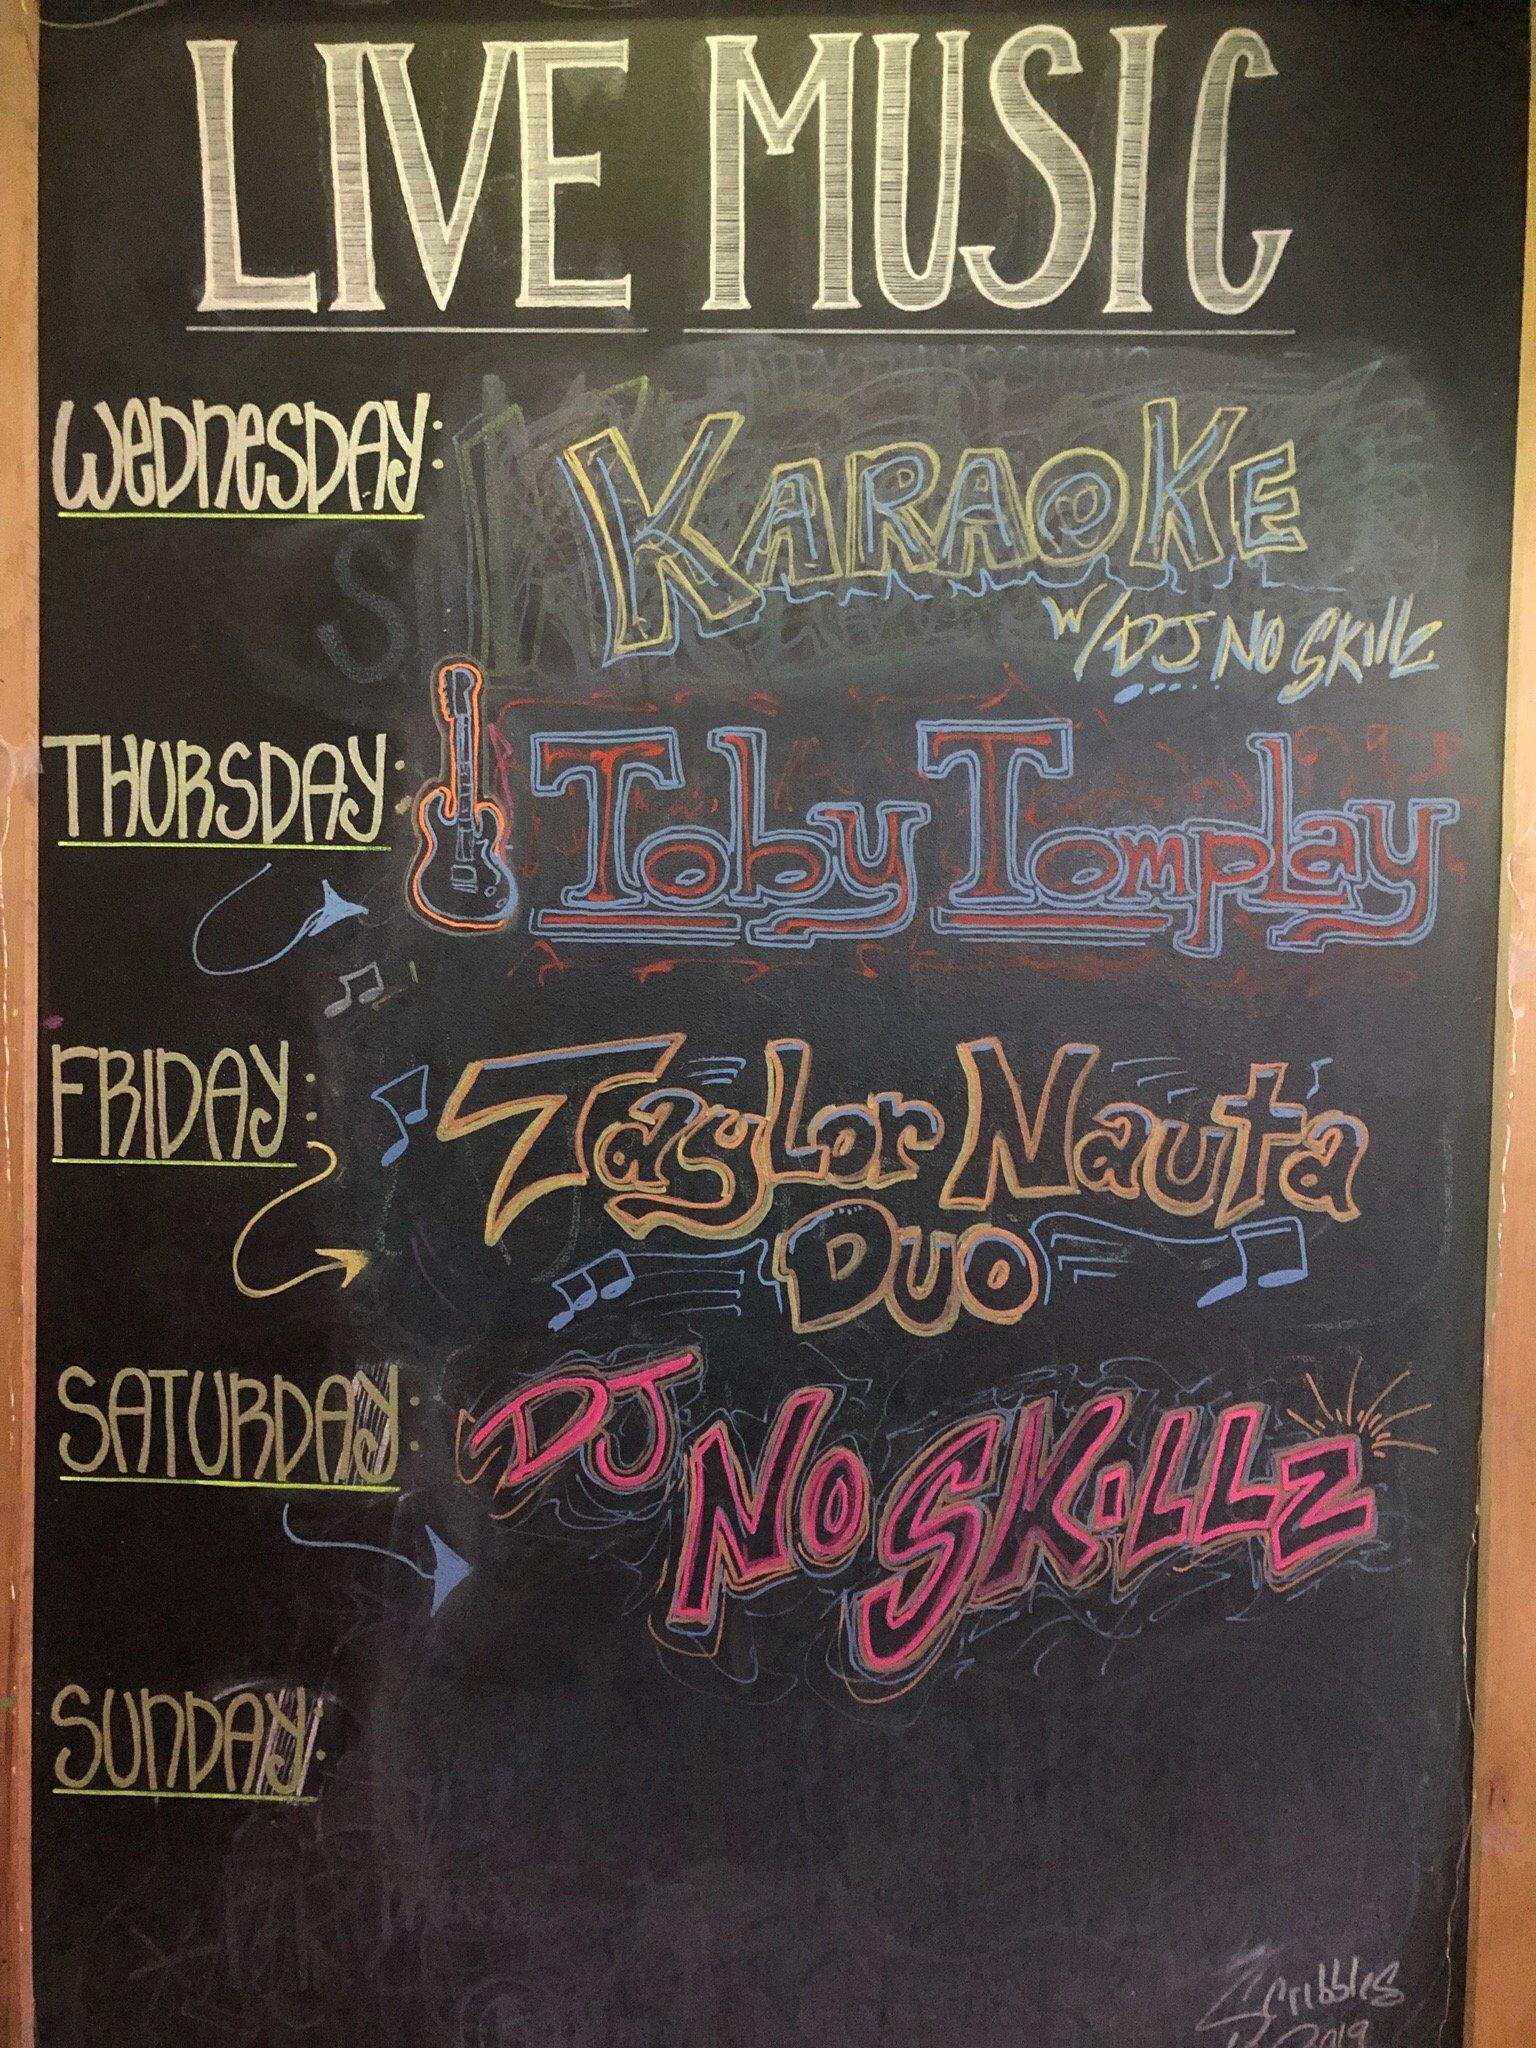 LIVE MUSIC
WEDNESDAY:
KARAOKE
W/ DJ NO SKILLZ
THURSDAY:
Toby Tomplay
FRIDAY:
Taylor Nauta
Duo
SATURDAY:
DJ
NO SKILLZ
SUNDAY:
Scribbles
2019